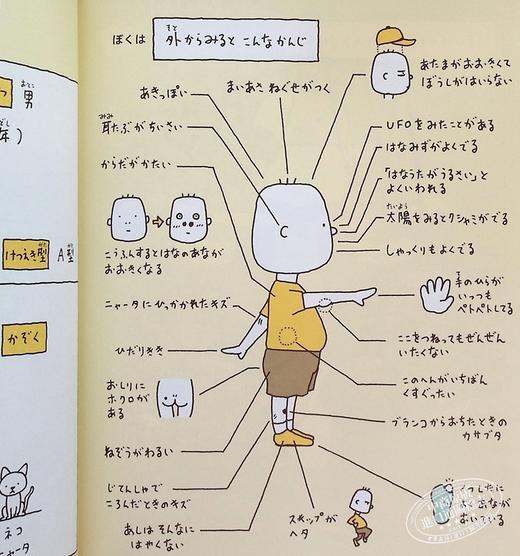 ぼくは 外からみると こんなかんじ
そと
あきっぽい
まいあさ ねぐせがつく
あたまがおおきくて
ぼうしがはいらない
みみ
耳たぶがちいさい
からだがかたい
UFOをみたことがある
はなみずがよくでる
「はなうたがうるさい」と
よくいわれる
たいよう
太陽をみるとクシャミがでる
しゃっくりもよくでる
こうふんするとはなのあなが
おおきくなる
ニャータにひっかかれたキズ
て
手のひらが
いっつも
ペトペトしてる
ひだりきき
ここをつねってもぜんぜん
いたくない
おしりに
ホクロが
ある
このへんがいちばん
くすぐったい
ブランコからおちたときの
カサブタ
ねぞうがわるい
じてんしゃで
ころんだときのキズ
あしは そんなに
はやくない
スキップが
ヘタ
くつしたに
よくあなが
あいている
おとこ
男
年)
けつえき型
がた
A型
がた
かぞく
ネコ
ニャータ